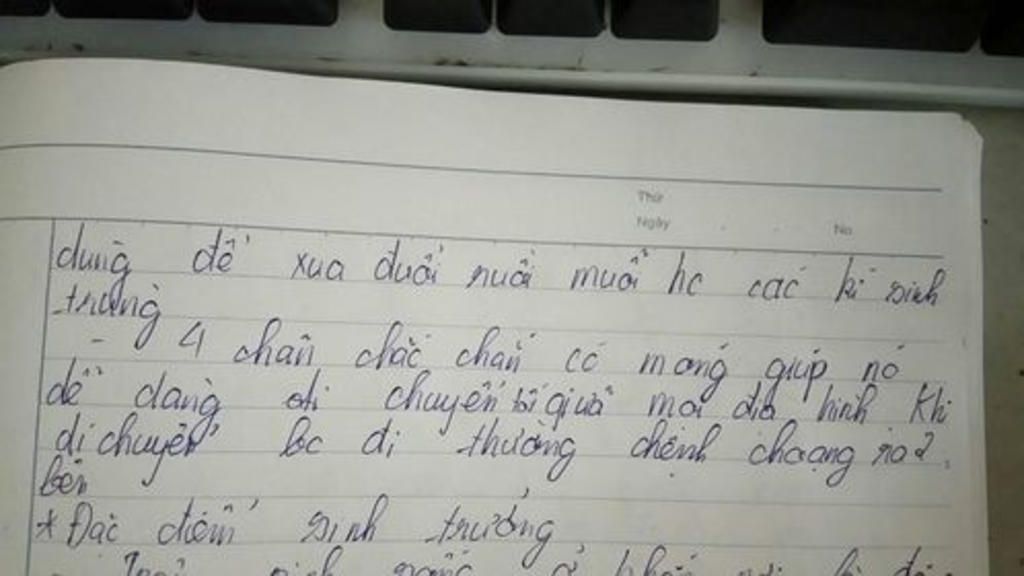 Thứ
Ngày No
dùng để xua đuổi ruồi muỗi hc các kí sinh
trùng
- 4 chân chắc chắn có móng giúp nó
dễ dàng di chuyển giữa mọi địa hình khi
di chuyển bc đi thường chệnh choạng
bên
* Đặc điểm sinh trưởng